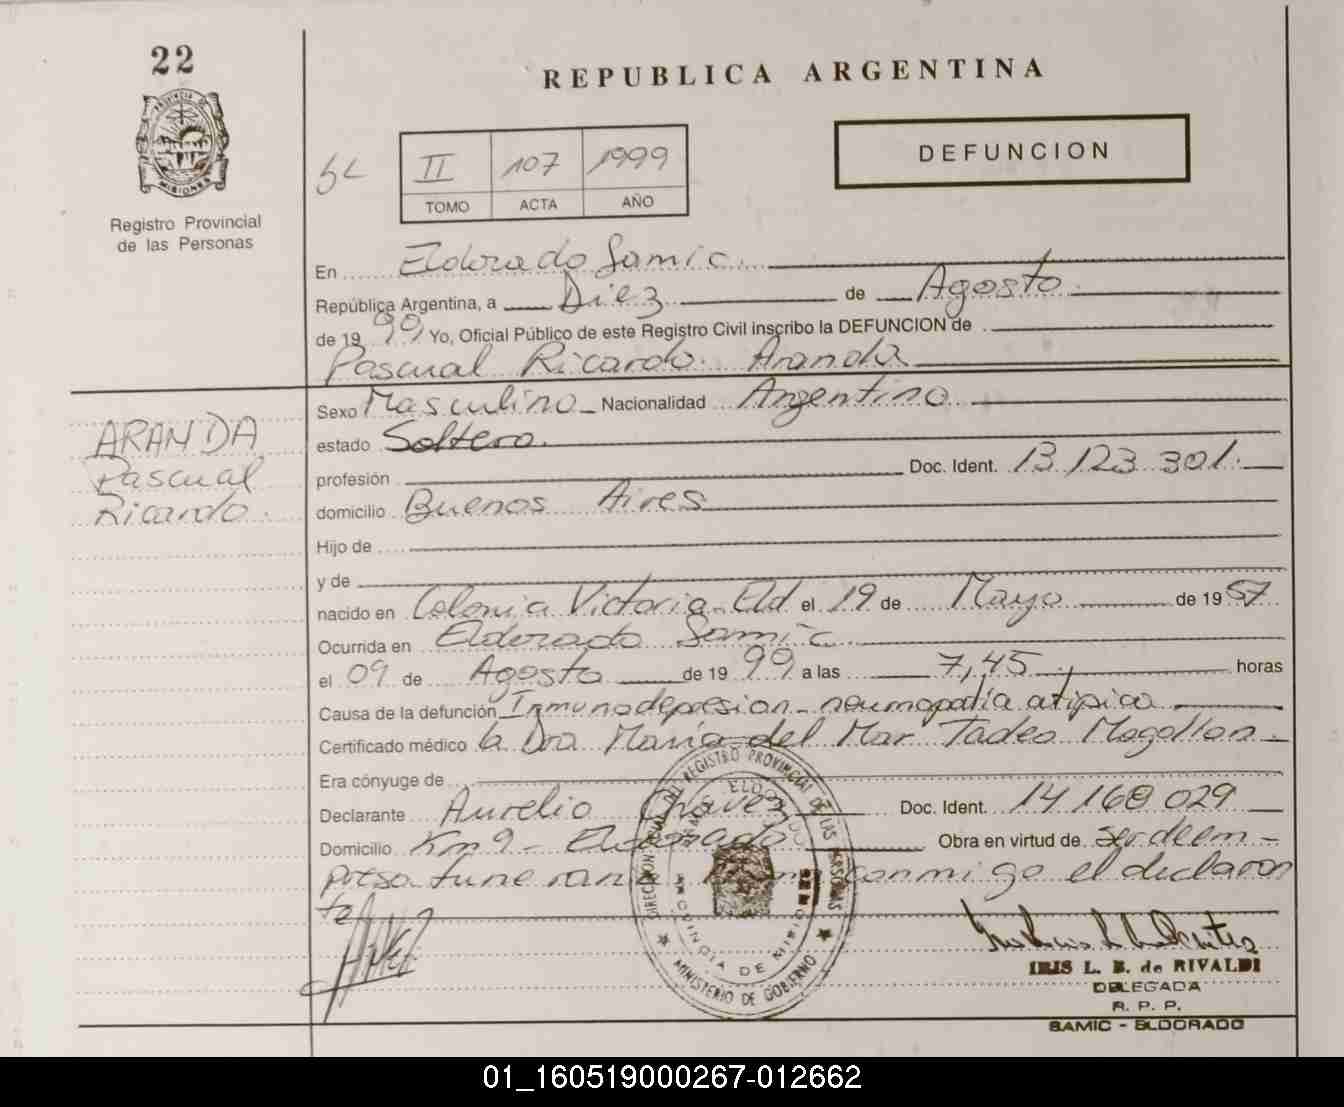 22
REPUBLICA ARGENTINA
PROVINCIA DE
MISIONES
Registro Provincial
de las Personas
II 107 1999
TOMO ACTA AÑO
DEFUNCION
En Eldorado Samic.
República Argentina, a Diez de Agosto.
de 1999 Yo, Oficial Público de este Registro Civil inscribo la DEFUNCION de
Pascual Ricardo. Aranda
ARANDA
Pascual
Ricardo.
Sexo Masculino Nacionalidad Argentino
estado Soltero.
profesión Doc. Ident. 13 123 301.
domicilio Buenos Aires
Hijo de
y de
nacido en Colonia Victoria-Eld el 19 de Mayo de 1957
Ocurrida en Eldorado Samic
el 09 de Agosto de 1999 a las 7,45 horas
Causa de la defunción Inmunodepresion-neumopatía atipica
Certificado médico la Dra María del Mar Tadeo Magallon
Era cónyuge de
Declarante Aurelio Chavez Doc. Ident. 14 168 029
Domicilio Km 9 - Eldorado Obra en virtud de ser de em-
presa funeraria conmigo el declaran
te
DIRECCION DEL REGISTRO PROVINCIAL DE LAS PERSONAS
MINISTERIO DE GOBIERNO
PROVINCIA DE MISIONES
ELDORADO
IRIS L. B. de RIVALDI
DELEGADA
R. P. P.
SAMIC - ELDORADO
01_160519000267-012662